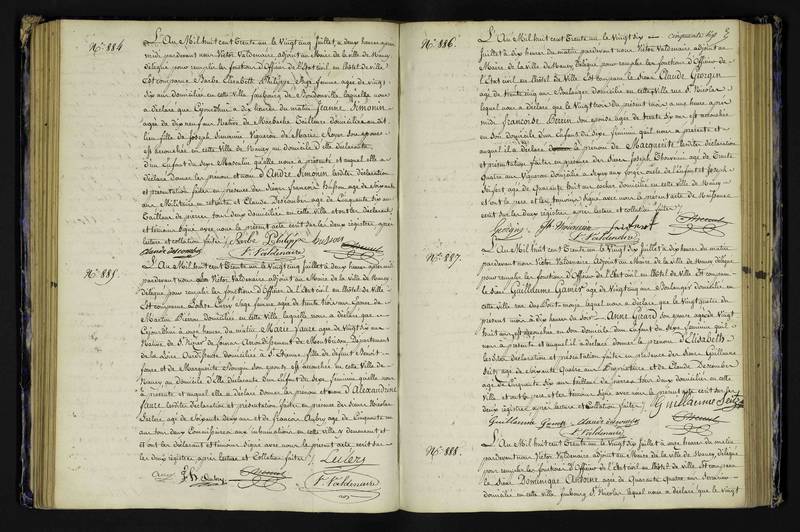 N.° 884
L'An Mil huit cent Trente un le Vingt cinq Juillet, à deux heures après
midi pardevant nous Victor Valdenaire adjoint au Maire de la Ville de Nancy
délégué pour remplir les fonctions d'Officier de l'État civil, en l'hôtel de ville
Est comparue Barbe Elisabeth Philippe Sage femme agée de vingt
six ans domiciliée en cette Ville faubourg de laquelle nous
a déclaré que à dix heures du matin Jeanne Simonin
agée de dix neuf ans Native de Marbache Tailleuse domiciliée au dit
lieu fille de Joseph Simonin Vigneron de Marie son épouse
est accouchée en cette Ville de Nancy au domicile d'elle déclarante
d'un Enfant du Sexe Masculin qu'elle nous a présenté et auquel elle a
déclaré donner les prénom et nom d'André Simonin lesdites déclaration
et présentation faites en présence des Sieurs François Husson agé de Soixante
ans Militaire en retraite et Claude Descombes agé de Cinquante Six ans
Tailleur de pierres tous deux domiciliés en cette Ville et ont les déclarant
et témoins signé avec nous le présent acte écrit sur les deux registres après
lecture et collation faites / Barbe Philippe husson
claude descombe V. Valdenaire
N.° 885.
L'An Mil huit cent Trente un le Vingt cinq Juillet à deux heures après midi
pardevant nous Victor Valdenaire adjoint au Maire de la Ville de Nancy
délégué pour remplir les fonctions d'Officier de l'État civil en l'hôtel de Ville
Est comparue Sage femme agée de trente trois ans femme de
Martin Pierron domiciliée en cette Ville, laquelle nous a déclaré que
à onze heures du matin Marie Jauze agée de Vingt Six ans
Native de Arrondissement de Montbrison Département
de la Loire domiciliée à St Etienne fille de défunt Benoit
Jauze et de Marguerite son épouse est accouchée en cette Ville de
Nancy au domicile d'Elle déclarante d'un Enfant du Sexe féminin qu'elle nous
a présenté et auquel elle a déclaré donner les prénom et nom d'Alexandrine
Jauze lesdites déclaration et présentation faites en présence des Sieurs Nicolas
agé de Soixante deux ans et de François Aubry agé de Cinquante un
ans tous deux Commissaires aux inhumations en cette ville y demeurant et
et ont les déclarant et témoins Signé avec nous le présent acte écrit sur
les deux registres après lecture et Collation faites /.
f. Aubry V. Valdenaire
N.° 886.
L'An Mil huit cent Trente un le Vingt Six cinquante six
Juillet à dix heures du matin pardevant nous Victor Valdenaire adjoint au
Maire de la Ville de Nancy délégué pour remplir les fonctions d'Officier de
l'État civil en l'hôtel de Ville Est comparu le Sieur Claude Georgin
agé de trente cinq ans Boulanger domicilié en cette Ville rue St Nicolas
lequel nous a déclaré que le Vingt trois du présent mois à une heure après
midi françoise Perrin son épouse agée de trente Six ans est accouchée
en son domicile d'un Enfant du Sexe féminin qu'il nous a présenté et
auquel il a déclaré donner le prénom de Marguerite lesdites déclaration
et présentation faites en présence des Sieurs Joseph Thouvenin agé de Trente
Quatre ans Vigneron domicilié à oncle de l'enfant et Joseph
agé de Quarante huit ans cocher domicilié en cette Ville de Nancy
et ont les père et les témoins signé avec nous le présent acte de Naissance
écrit sur les deux registres après lecture et collation faites /
Georgin
V. Valdenaire
N.° 887.
L'An Mil huit cent Trente un le Vingt Six Juillet à dix heures du matin
pardevant nous Victor Valdenaire adjoint au Maire de la Ville de Nancy délégué
pour remplir les fonctions d'Officier de l'État civil en l'hôtel de Ville Est comparu
le Sieur Guillaume Ganier agé de Vingt cinq ans Boulanger domicilié en
cette Ville rue du Pont mouja lequel nous a déclaré que le Vingt quatre du
présent mois à dix heures du soir Anne Picard son épouse agée de Vingt
huit ans est accouchée en son domicile d'un Enfant du Sexe féminin qu'il
nous a présenté et auquel il a déclaré donner le prénom d'Elisabeth
lesdites déclaration et présentation faites en présence des Sieurs Guillaume
Seitz agé de Soixante Quatre ans Propriétaire et de Claude Descombes
agé de Cinquante Six ans tailleur de pierres tous deux domiciliés en cette
Ville et ont les père et les témoins Signé avec nous le présent acte écrit sur les
deux registres après lecture et Collation faites / Guillaumme Seitz
Guillaume Ganier claude descombe
V. Valdenaire
N.° 888.
L'An Mil huit cent Trente un le Vingt Six Juillet à onze heures du matin
pardevant nous Victor Valdenaire adjoint au Maire de la Ville de Nancy délégué
pour remplir les fonctions d'Officier de l'État civil en l'hôtel de Ville Est comparu
le Sieur Dominique Antoine agé de Quarante Quatre ans
domicilié en cette Ville, faubourg St Nicolas, lequel nous a déclaré que le Vingt